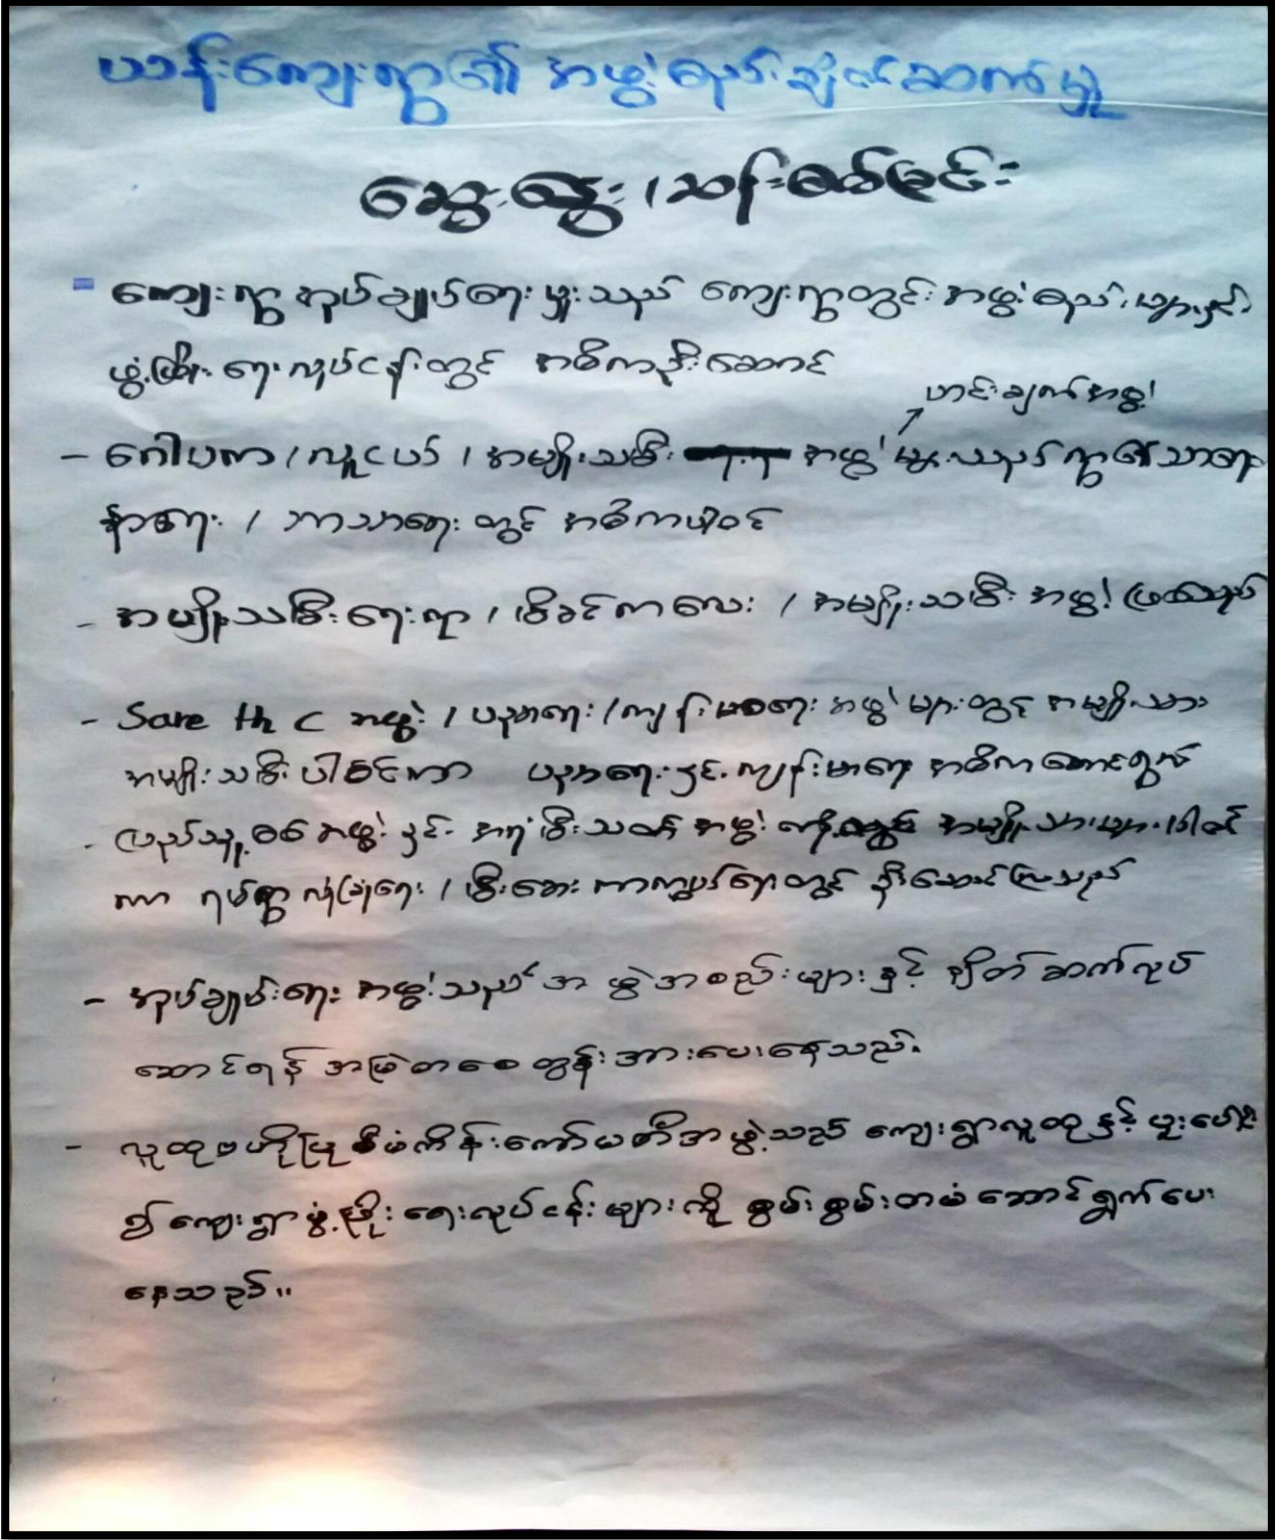 ယာန်းကျေးရွာ၏ အဖွဲ့စည်းချိတ်ဆက်မှု
ဆွေးနွေး/ဆန်းစစ်ခြင်း
ကျေးရွာအုပ်ချုပ်ရေးမှူးသည် ကျေးရွာတွင်း အဖွဲ့စည်းများနှင့်
ဖွံ့ဖြိုးရေးလုပ်ငန်းတွင် အဓိကဦးဆောင်
ဟင်းချက်အဖွဲ့
- ဂေါပက/လူငယ်/အမျိုးသမီး အဖွဲ့များသည် ရွာ၏သာရေး
နာရေး / ဘာသာရေးတွင် အဓိကပါဝင်
- အမျိုးသမီးရေးရာ / မိခင်ကလေး / အမျိုးသမီးအဖွဲ့
- Save the C အဖွဲ့ / ပညာရေး/ကျန်းမာရေး အဖွဲ့များတွင် အမျိုးသား
အမျိုးသမီး ပါဝင်ကာ ပညာရေးနှင့် ကျန်းမာရေး အဓိကဆောင်ရွက်
- ပြည်သူ့စစ်အဖွဲ့နှင့် အရံမီးသတ်အဖွဲ့ အမျိုးသားများပါဝင်
ကာ ရပ်ရွာလုံခြုံရေး / မီးဘေးကာကွယ်ရေးတွင် ဦးဆောင်ကြသည်
- အုပ်ချုပ်ရေး အဖွဲ့သည် အဖွဲ့အစည်းများနှင့် ချိတ်ဆက်လုပ်
ဆောင်ရန် အမြဲတစေ တွန်းအားပေးနေသည်.
- လူထုဗဟိုပြုစီမံကိန်းကော်မတီအဖွဲ့သည် ကျေးရွာလူထုနှင့် ပူးပေါင်း
၍ ကျေးရွာဖွံ့ဖြိုးရေးလုပ်ငန်းများကို စွမ်းစွမ်းတမံ ဆောင်ရွက်ပေး
နေသည်။